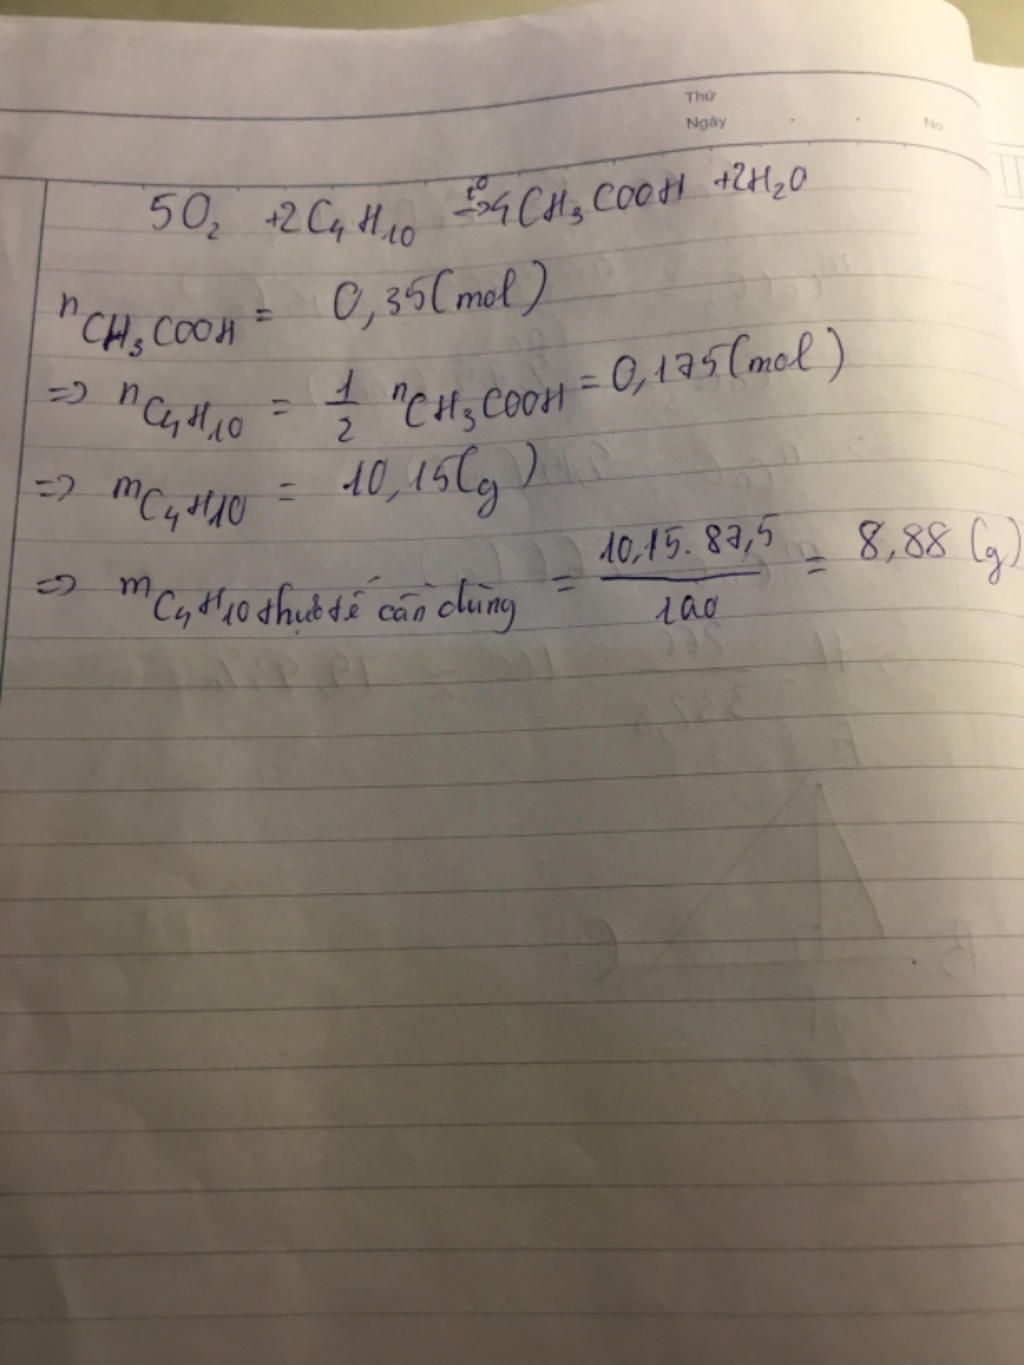 Thứ
Ngày No
5O₂ +2C₄H₁₀ t⁰→ 4CH₃COOH +2H₂O
nCH₃COOH = 0,35(mol)
=> nC₄H₁₀ = 1/2 nCH₃COOH = 0,175(mol)
=> mC₄H₁₀ = 10,15(g)
=> mC₄H₁₀ thực tế cần dùng = 10,15.87,5/100 = 8,88 (g)